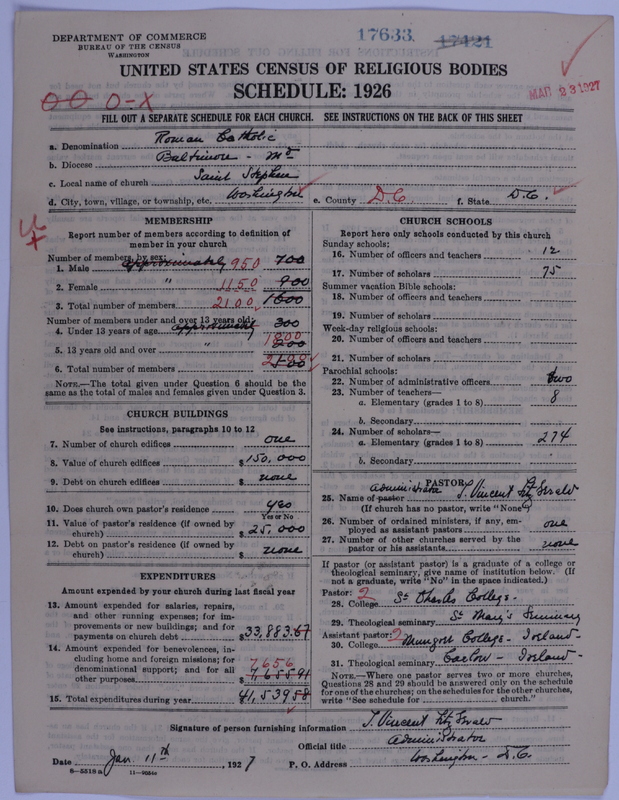 DEPARTMENT OF COMMERCE
BUREAU OF THE CENSUS
WASHINGTON
17633 17421
UNITED STATES CENSUS OF RELIGIOUS BODIES
SCHEDULE: 1926
MAR 23 1927
O O O-X
FILL OUT A SEPARATE SCHEDULE FOR EACH CHURCH. SEE INSTRUCTIONS ON THE BACK OF THIS SHEET
a. Denomination Roman Catholic
b. Diocese Baltimore - Md
c. Local name of church Saint Stephen
d. City, town, village, or township, etc. Washington e. County D.C. f. State D.C.
MEMBERSHIP
Report number of members according to definition of member in your church
Number of members by sex:
1. Male approximately 950 700
2. Female " 1150 900
3. Total number of members 2100 1600
Number of members under and over 13 years old:
4. Under 13 years of age approximately 300
5. 13 years old and over " 1800
6. Total number of members 2100
NOTE.—The total given under Question 6 should be the same as the total of males and females given under Question 3.
CHURCH BUILDINGS
See instructions, paragraphs 10 to 12
7. Number of church edifices one
8. Value of church edifices $150,000
9. Debt on church edifices $ none
10. Does church own pastor's residence yes
Yes or No
11. Value of pastor's residence (if owned by church) $ 25,000
12. Debt on pastor's residence (if owned by church) $ none
EXPENDITURES
Amount expended by your church during last fiscal year
13. Amount expended for salaries, repairs, and other running expenses; for improvements or new buildings; and for payments on church debt $33,883.67
14. Amount expended for benevolences, including home and foreign missions; for denominational support; and for all other purposes 7,656 $ 7,655 91
15. Total expenditures during year 41,539 58
CHURCH SCHOOLS
Report here only schools conducted by this church
Sunday schools:
16. Number of officers and teachers 12
17. Number of scholars 75
Summer vacation Bible schools:
18. Number of officers and teachers
19. Number of scholars
Week-day religious schools:
20. Number of officers and teachers
21. Number of scholars
Parochial schools:
22. Number of administrative officers two
23. Number of teachers—
a. Elementary (grades 1 to 8) 8
b. Secondary
24. Number of scholars—
a. Elementary (grades 1 to 8) 274
b. Secondary
PASTOR
25. Name of pastor administrator J. Vincent Fitzgerald
(If church has no pastor, write "None")
26. Number of ordained ministers, if any, employed as assistant pastors one
27. Number of other churches served by the pastor or his assistants none
If pastor (or assistant pastor) is a graduate of a college or theological seminary, give name of institution below. (If not a graduate, write "No" in the space indicated.)
Pastor: 2
28. College St Charles College -
29. Theological seminary St Mary's Seminary
Assistant pastor: 2
30. College Mungret College - Ireland
31. Theological seminary Carlow - Ireland -
NOTE.—Where one pastor serves two or more churches, Questions 28 and 29 should be answered only on the schedule for one of the churches; on the schedules for the other churches, write "See schedule for church."
Signature of person furnishing information J. Vincent Fitzgerald
Official title Administrator
Date Jan. 11th, 1927 P. O. Address Washington - D.C.
8-5518a 11-9054